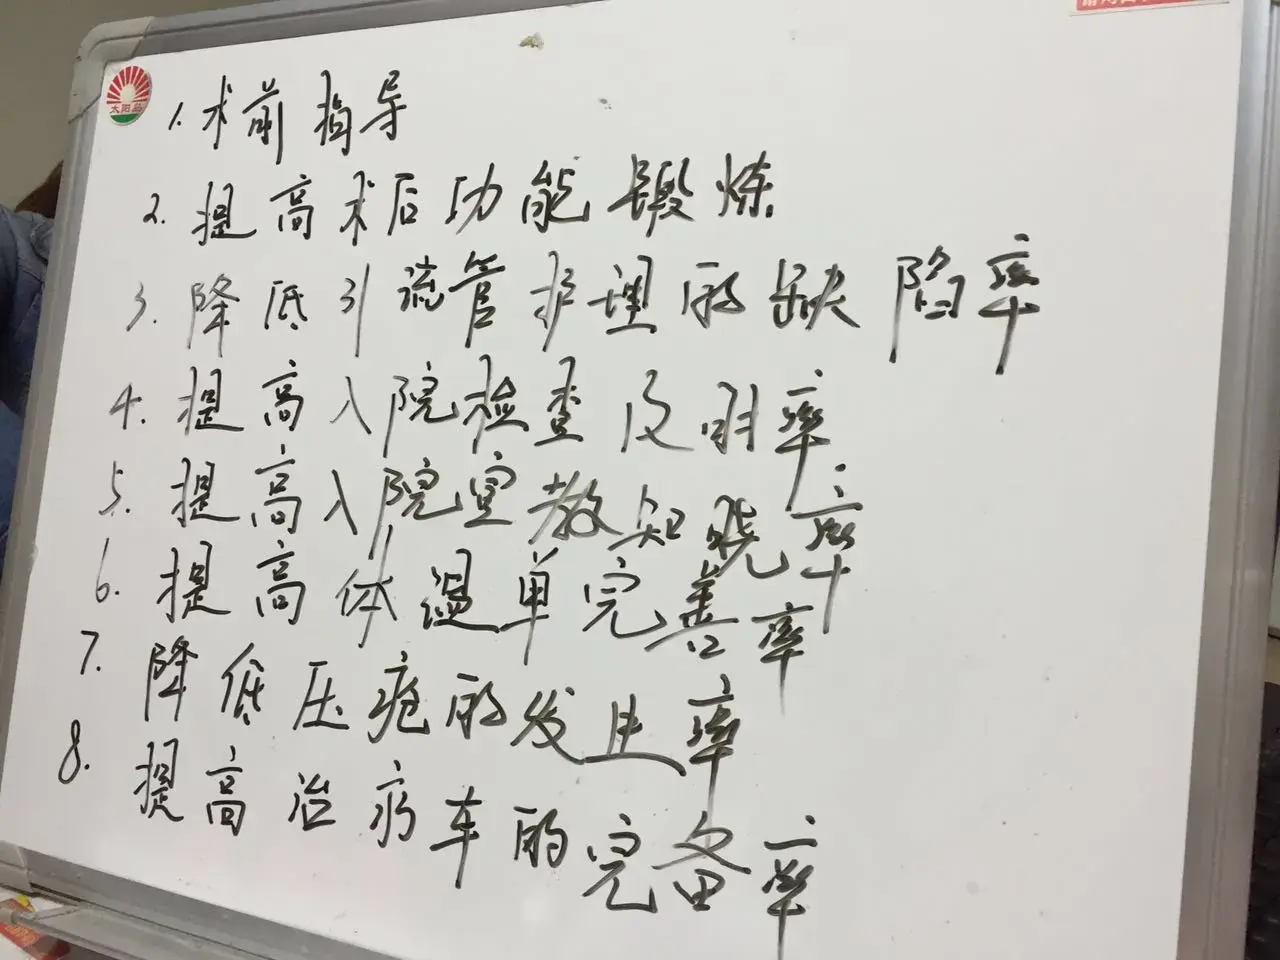 太阳岛
1. 术前指导
2. 提高术后功能锻炼
3. 降低引流管护理的缺陷率
4. 提高入院检查及时率
5. 提高入院宣教知晓率
6. 提高体温单完善率
7. 降低压疮的发生率
8. 提高治疗车的完备率